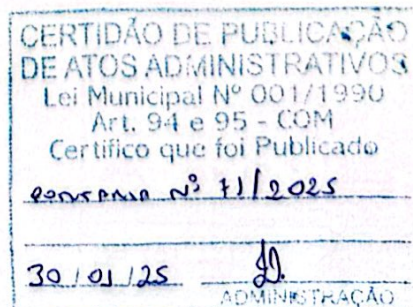 CERTIDÃO DE PUBLICAÇÃO
DE ATOS ADMINISTRATIVOS
Lei Municipal Nº 001/1990
Art. 94 e 95 - COM
Certifico que foi Publicado
PORTARIA Nº 71/2025
30/01/25
ADMINISTRAÇÃO